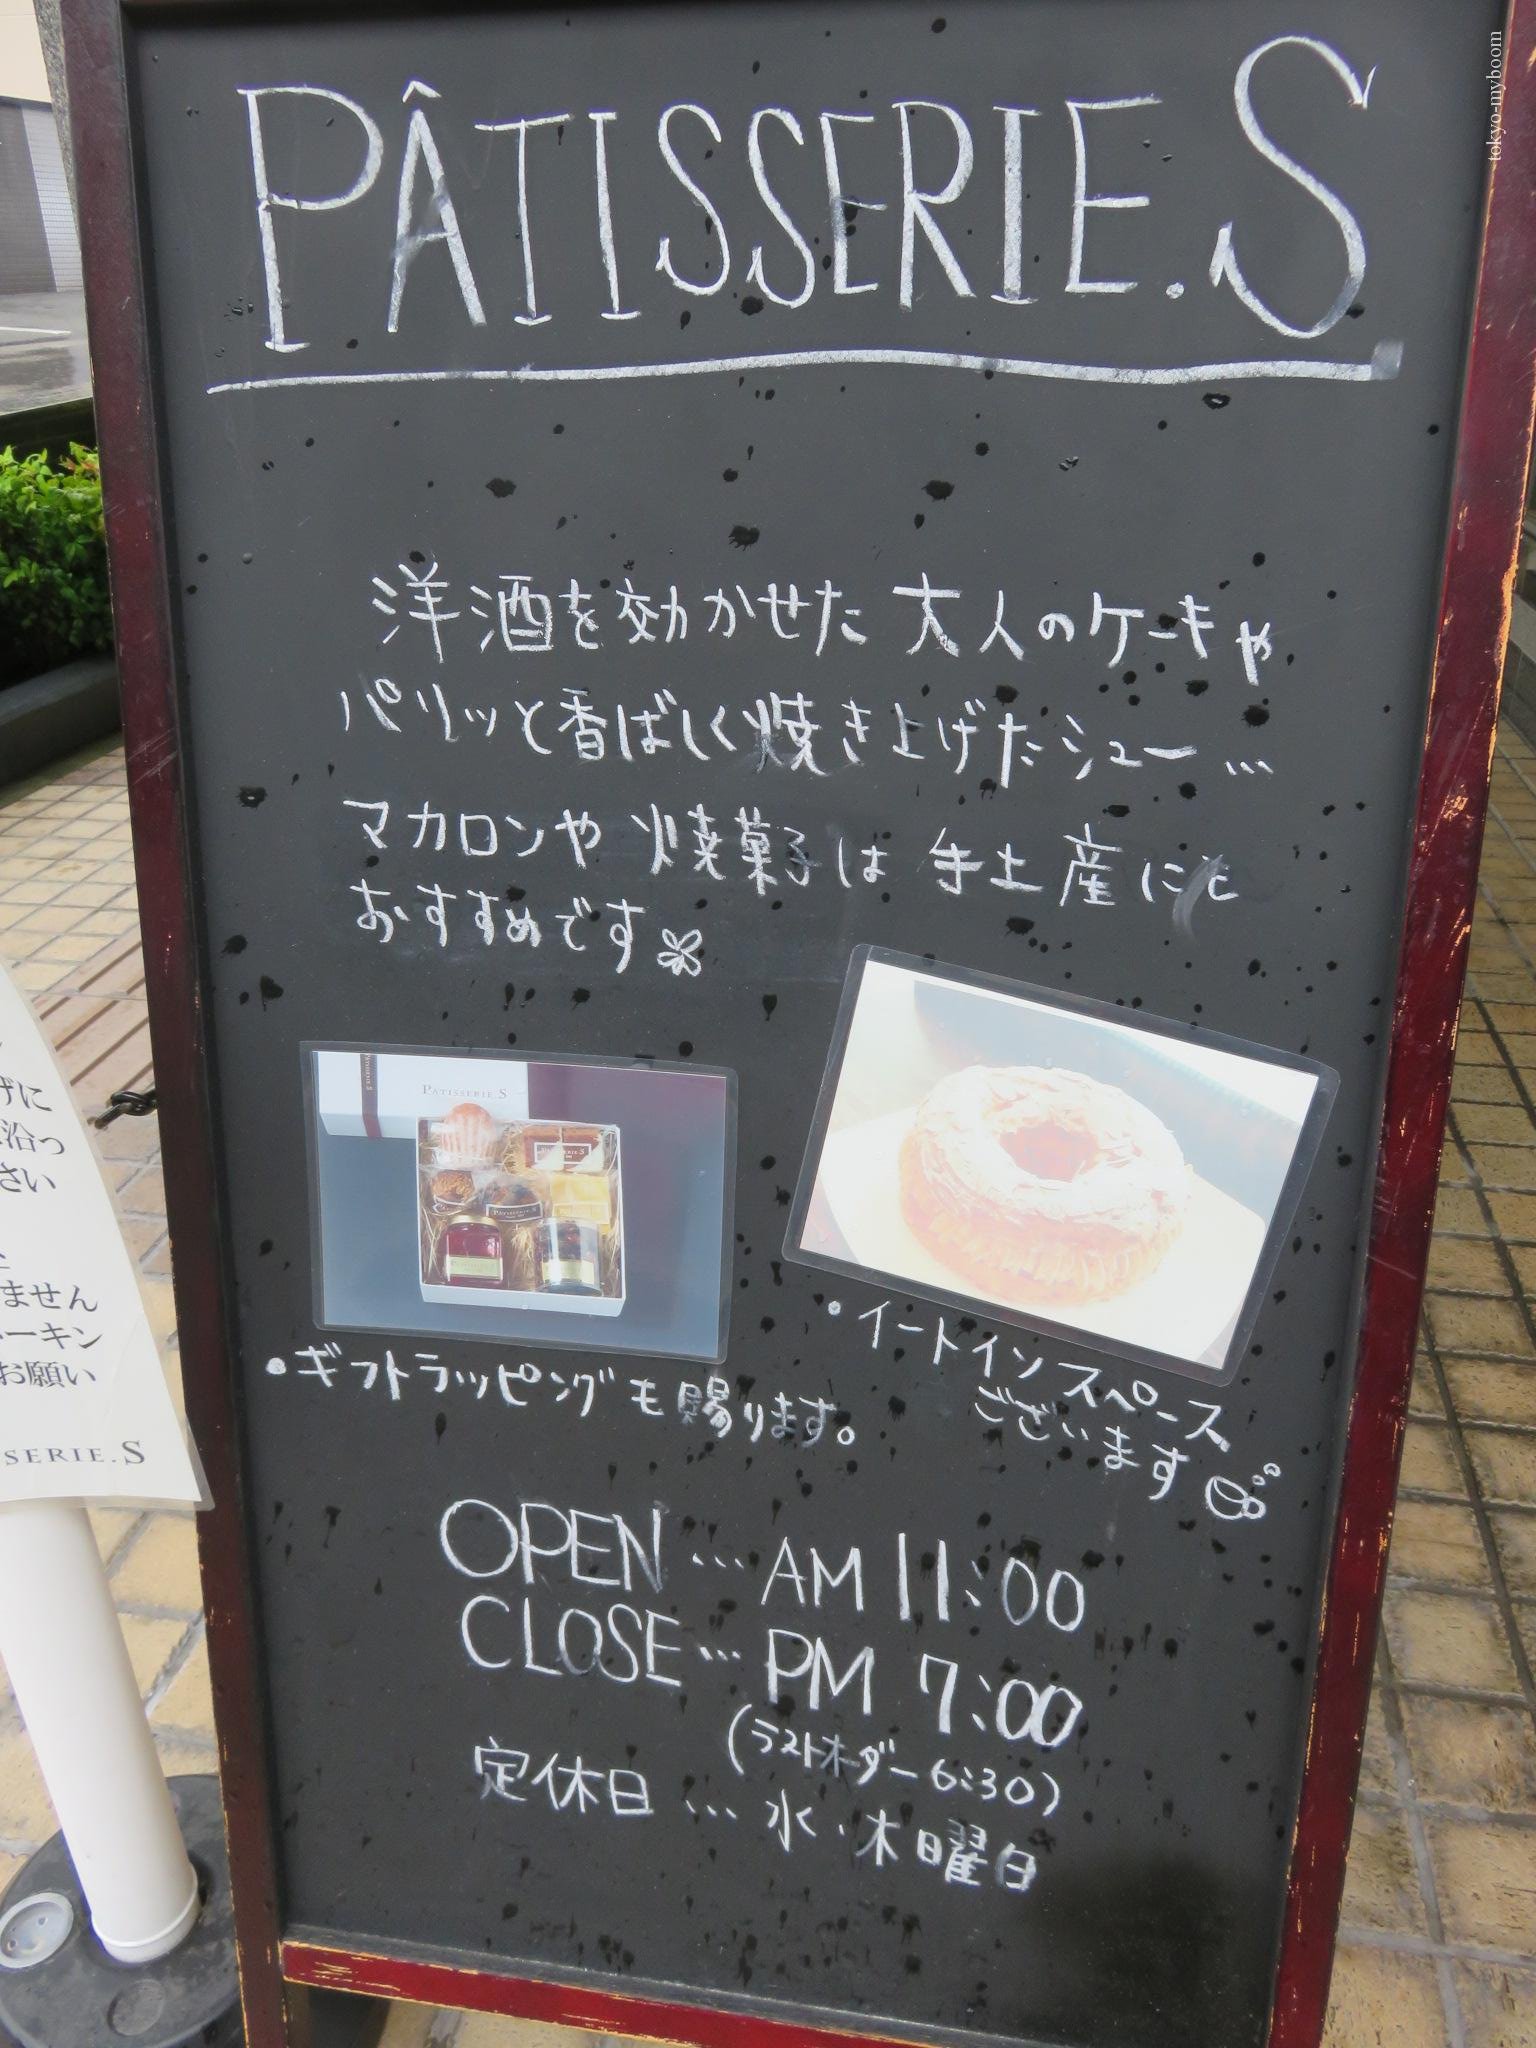 PÂTISSERIE.S
洋酒を効かせた大人のケーキや
パリッと香ばしく焼き上げたシュー…
マカロンや焼菓子は手土産にと
おすすめです
PATISSERIE.S
PATISSERIE.S
・ギフトラッピングも賜ります。
・イートインスペース
ございます
OPEN … AM 11:00
CLOSE … PM 7:00
(ラストオーダー 6:30)
定休日 … 水・木曜日
げに
沿っ
さい
ません
ーキン
お願い
SSERIE.S
tokyo-myboom